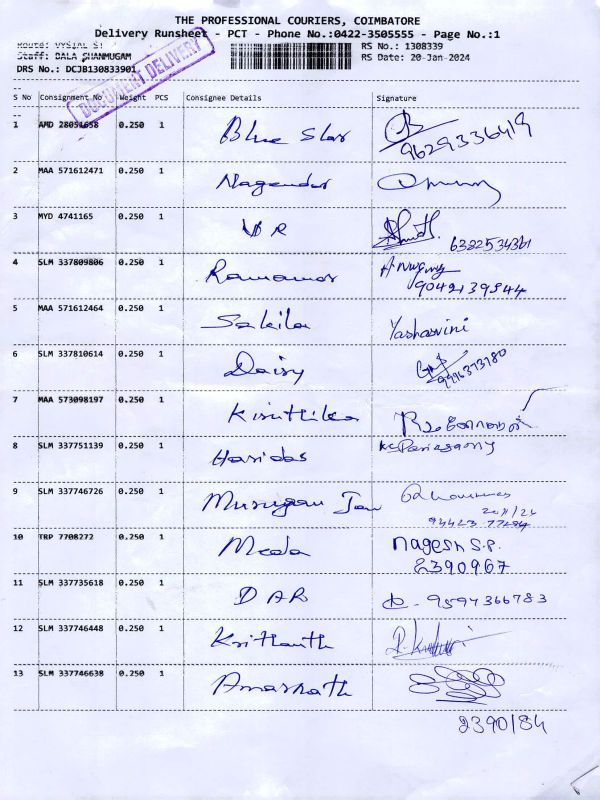 THE PROFESSIONAL COURIERS, COIMBATORE
Delivery Runsheet - PCT - Phone No.:0422-3505555 - Page No.:1
Route: VYSIAL ST
Staff: BALA SHANMUGAM
DRS No.: DCJB130833901
RS No.: 1308339
RS Date: 20-Jan-2024
DOCUMENT DELIVERY
S No Consignment No Weight PCS Consignee Details Signature
1 AMD 28051658 0.250 1 Blue Star
9629336419
2 MAA 571612471 0.250 1 Nagendar
3 MYD 4741165 0.250 1 VBR
6382534361
4 SLM 337809806 0.250 1
9042139944
5 MAA 571612464 0.250 1 Sakila Yashasvini
6 SLM 337810614 0.250 1 Daisy
7 MAA 573098197 0.250 1 Kiruthika
8 SLM 337751139 0.250 1 Haridas
9 SLM 337746726 0.250 1 Murugan
10 TRP 7708272 0.250 1 Meeda Nagesh S.P.
2390967
11 SLM 337735618 0.250 1 DAR 9597366783
12 SLM 337746448 0.250 1
13 SLM 337746638 0.250 1 Amarnath
2390184